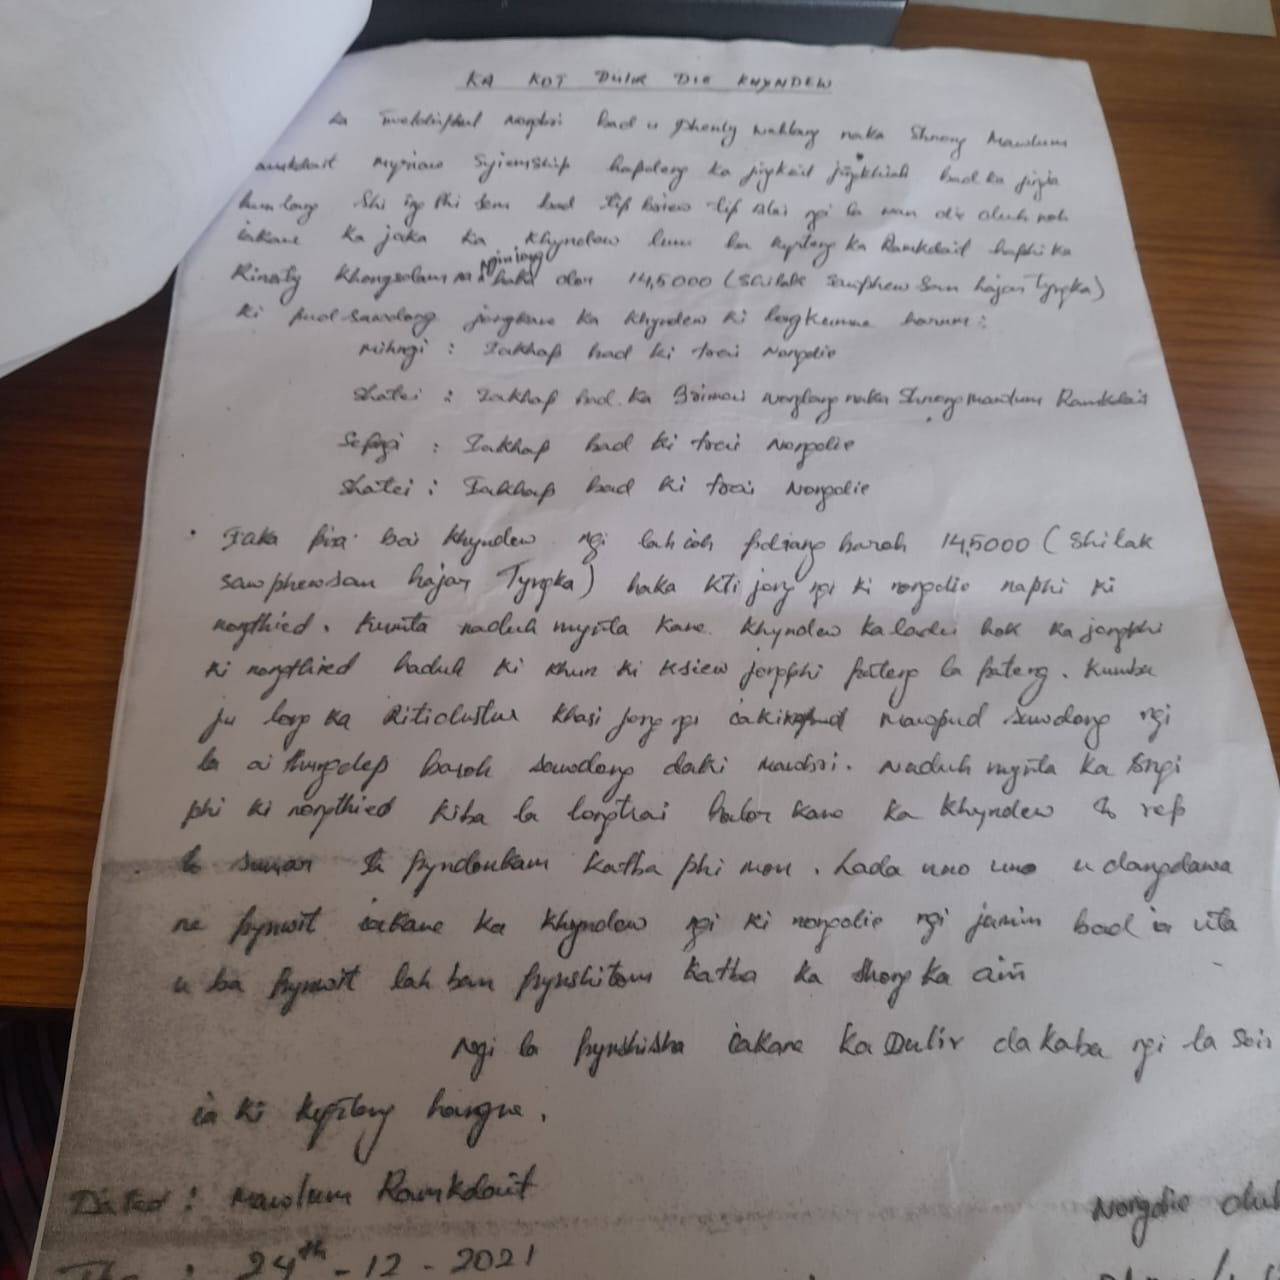 KA KOT DULIR DIE KHYNDEW
bad u naka Shnong Mawlum
Syiemship hapdeng ka jingkait jingkhiah bad ka jingïa
lang Shi ïng Shi sem bad tip briew tip blei ngi la man die duh noh
ïakane ka jaka ka khyndew lum ba kyrteng ka Ramkdait haphi ka
Rinaty Khongsdam ngin ïong haka dor 14,5000 (Shilak sawphew san hajar Tyngka)
ki pud sawdong jongkane ka khyndew ki longkumne harum :
Mihngi : Ïakhap bad ki trai Nongdie
Shatei : Ïakhap bad ka naka Shnong Mawlum Ramkdait
Sepngi : Ïakhap bad ki trai Nongdie
Shatei : Ïakhap bad ki trai Nongdie
Ïaka bai khyndew ngi lah ïoh pdiang baroh 14,5000 (Shilak
sawphewsan hajar Tyngka) haka kti jong ngi ki nongdie naphi ki
nongthied. Kumta naduh mynta kane khyndew kaladei hok ka jongphi
ki nongthied haduh ki khun ki ksiew jongphi pateng la pateng. Kumba
ju long ka Ritidustur Khasi jong ngi Mawpud sawdong ngi
la ai thungdep baroh sawdong daki mawbri. Naduh mynta ka sngi
phi ki nongthied kiba la longtrai halor kane ka khyndew to rep
to sumar to pyndonkam katba phi mon. Lada uno uno u dangdawa
ne pynwit ïakane ka khyndew ngi ki nongdie ngi jamin bad ïa uta
u ba pynwit lah ban pynshitom katba ka shong ka aiñ
Ngi la pynshisha ïakane ka Dulir da kaba ngi la soi
ïa ki kyrteng hangne.
Dated : Mawlum Ramkdait
Nongdie duh
The : 24th - 12 - 2021